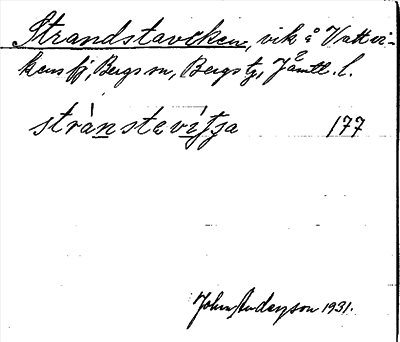 Strandstavcken, vik å Vattvi-
kens fj, Bergs sn, Bergs tg, Jämtl. l.
strànstevítja 177
John Anderson 1931.